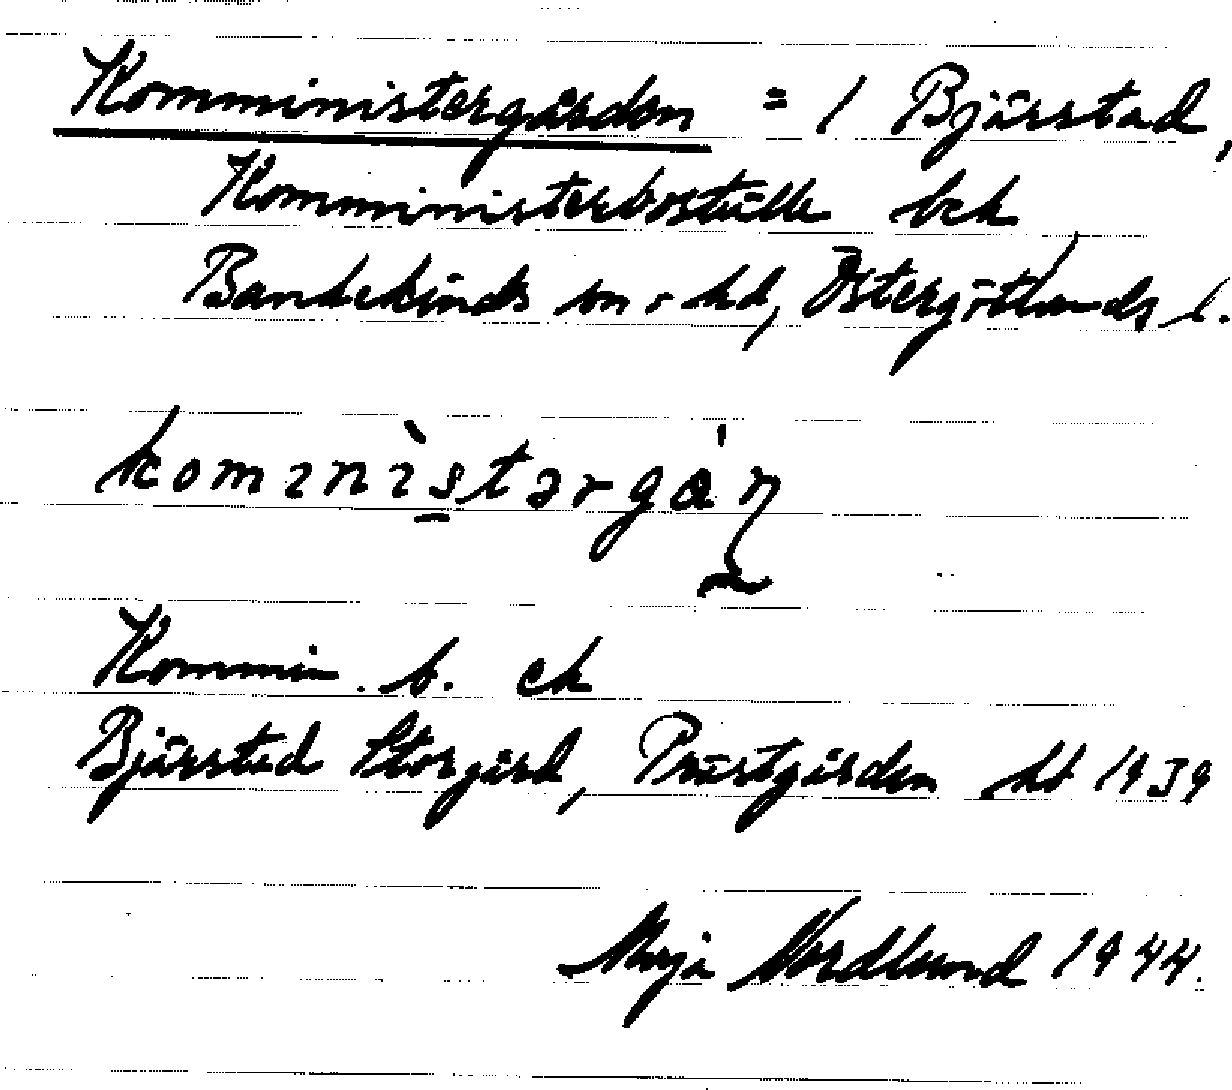 Komministergården = 1 Bjärstad,
Komministerboställe bck
Bankekinds sn o hd, Östergötlands l.
komɪnɪ̀stərgǻɳ
Kommin. b. ek
Bjärstad Storgård, Prästgården kb 1939
Maja Nordlund 1944.